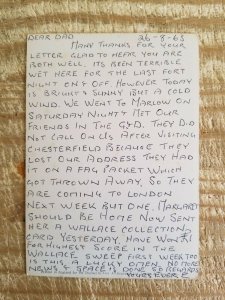 DEAR DAD 26-8-63
MANY THANKS FOR YOUR
LETTER GLAD TO HEAR YOU ARE
BOTH WELL. ITS BEEN TERRIBLE
WET HERE FOR THE LAST FORT
NIGHT ON & OFF HOWEVER TODAY
IS BRIGHT & SUNNY BUT A COLD
WIND. WE WENT TO MARLOW ON
SATURDAY NIGHT & MET OUR
FRIENDS IN THE G&D. THEY DID
NOT CALL ON US AFTER VISITING
CHESTERFIELD BECAUSE THEY
LOST OUR ADDRESS THEY HAD
IT ON A FAG PACKET WHICH
GOT THROWN AWAY. SO THEY
ARE COMING TO LONDON
NEXT WEEK BUT ONE. MARGARET
SHOULD BE HOME NOW SENT
HER A WALLACE COLLECTION
CARD YESTERDAY. HAVE WON £1
FOR HIGHEST SCORE IN THE
WALLACE SWEEP FIRST WEEK TOO
IS THIS A LUCKY OMEN. NO MORE
NEWS & SPACE IS DONE SO REGARDS
YOURS EVER E